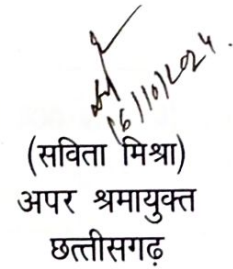 16/10/2024.
(सविता मिश्रा)
अपर श्रमायुक्त
छत्तीसगढ़